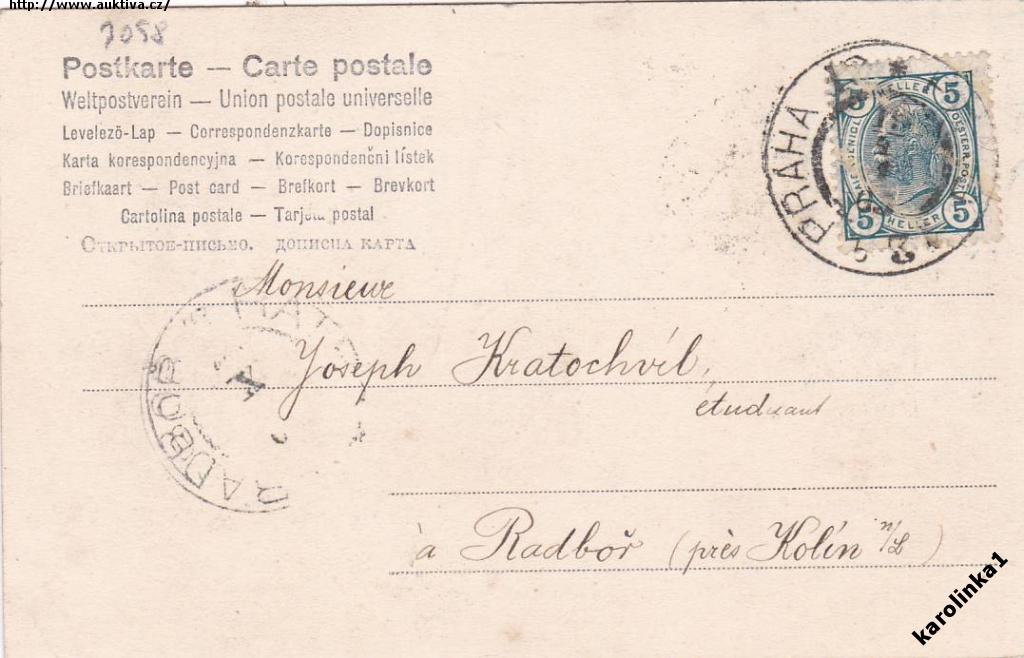 http://www.auktiva.cz/
7058
Postkarte — Carte postale
Weltpostverein — Union postale universelle
Levelező-Lap — Correspondenzkarte — Dopisnice
Karta korespondencyjna — Korespondenčni lístek
Briefkaart — Post card — Brefkort — Brevkort
Cartolina postale — Tarjeta postal
Открытое-письмо. дописна карта
PRAHA
5 HELLER 5
5 HELLER 5
Monsieur
Joseph Kratochvíl,
étudiant
RADBOŘ
à Radboř (près Kolín n/L)
karolinka1